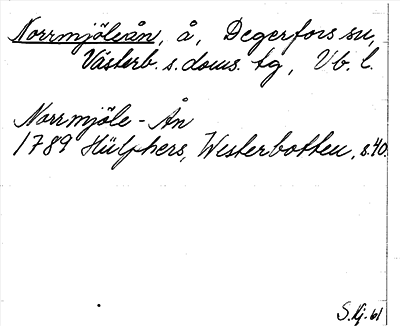 Norrmjöleån, å, Degerfors sn,
Västerb. s. doms. tg, Vb. l.
Norrmjöle-Ån
1789 Hülphers, Westerbotten, s. 40.
S. Kj. 61